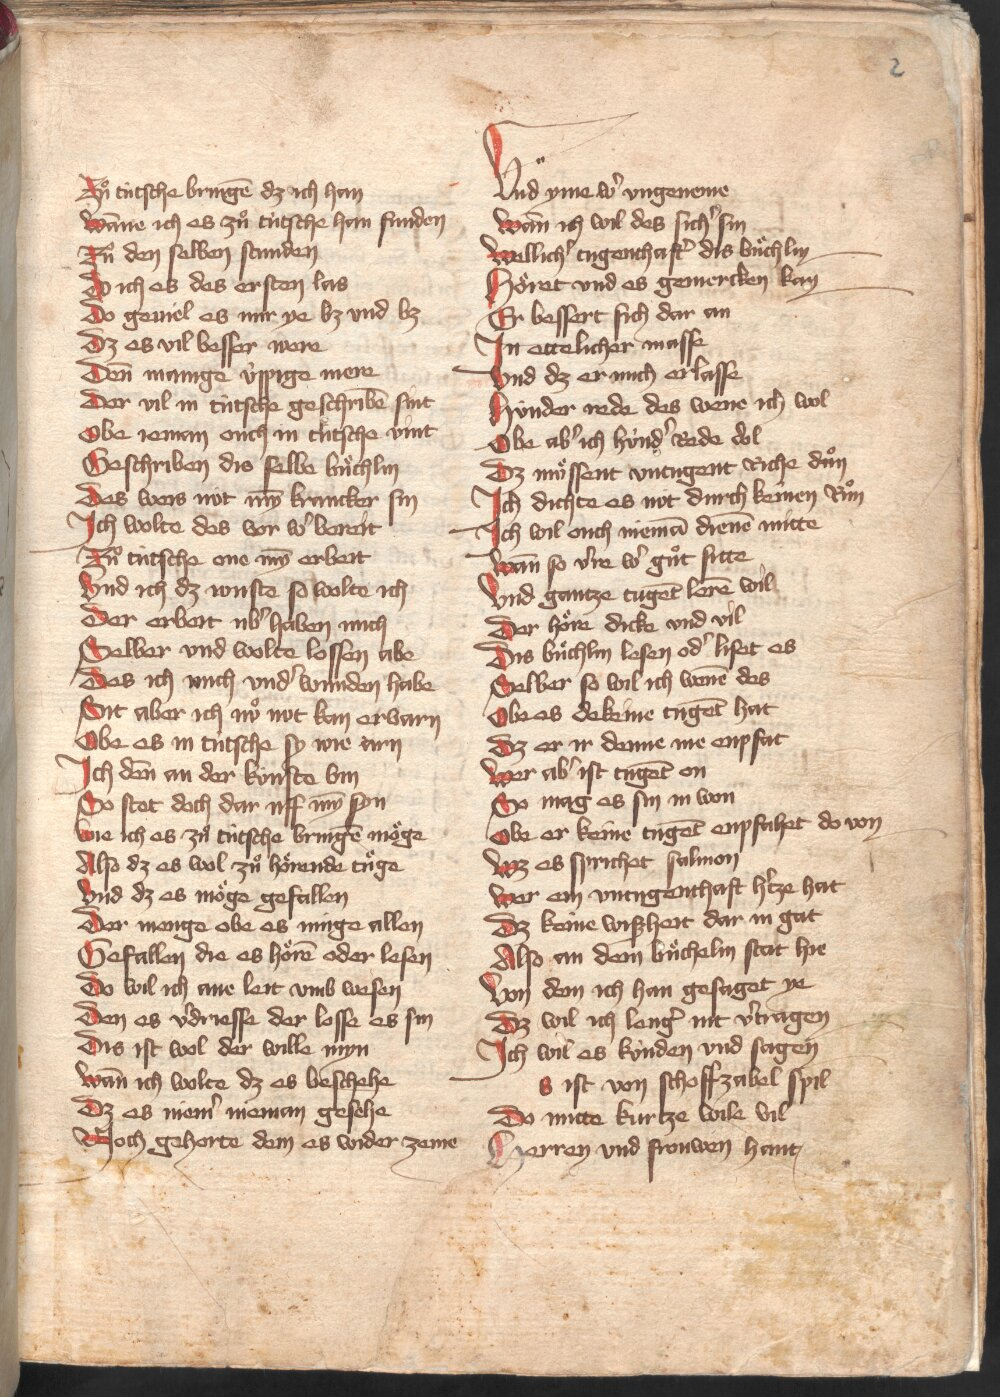 2
Zů tútsche bringē dz ich han
Wāne ich es zů tútsche han funden
Zů den selben stunden
Do ich es des ersten las
Do geuiel es mir ye bz vnd bz
Dz es vil besser were
Deñ manige v́ppige mere
Der vil in tútsche geschribē sint
Obe ieman ouch in tútsche vint
Geschriben dis selbe bůchlin
Des wers nút mȳ krancker sin
Ich wolte des vor w' bereit
Zů tútsche one mȳ erbeit
Vnd ich dz wuste so wolte ich
Der erbeit ub' haben mich
Selber vnd wolte lossen abe
Des ich mich vnd' wunden habe
Sit aber ich nů nút kan ervarn
Obe es in tútsche sy wie arn
Ich deñ an der kúnste bin
So stet doch dar uff mȳ syn
Wie ich es zů tútsche bringē möge
Also dz es wol zů hörende töge
Vnd dz es möge gefallen
Der menge obe es múge allen
Gefallen die es hörē oder lesen
Do wil ich ane leit vmb wesen
Den es v'driesse der losse es sin
Dis ist wol der wille myn
Wañ ich wolte dz es beschehe
Dz es niem' nieman gesehe
Noch gehorte dem es wider zeme
Vnd yme w' vngeneme
Wañ ich wil des sich' sin
Wellich' tugenthaft' dis bůchlin
Höret vnd es gemercken kan
Er bessert sich dar an
In ettelicher masse
Vnd dz er mich erlasse
Hynder rede des wene ich wol
Obe ab' ich hynd' Rede dol
Dz můssent vntugent Riche důn
Ich dichte es nút durch keinen Rům
Ich wil ouch niemā dienē mitte
Wañ so v're w' gůt sitte
Vnd gantze tugēt lerē wil
Der höre dicke vnd vil
Dis bůchlin lesen od' liset es
Selber so wil ich wenē des
Obe es dekeine tugēt hat
Dz er ir denne me enpfat
Wer ab' ist tugēt on
So mag es sin in won
Obe er keine tugēt enpfahet do von
Wz es sprichet salmon
Wer ein vntugenthaft h'tze hat
Dz keine wißheit dar in gat
Also an dem bůchelin stat hie
Von dem ich han gesaget ye
Dz wil ich leng' nit v'tragen
Ich wil es kúnden vnd sagen
s ist von schoffzabel spil
Do mitte kurtze wile vil
Herren vnd frouwen hant